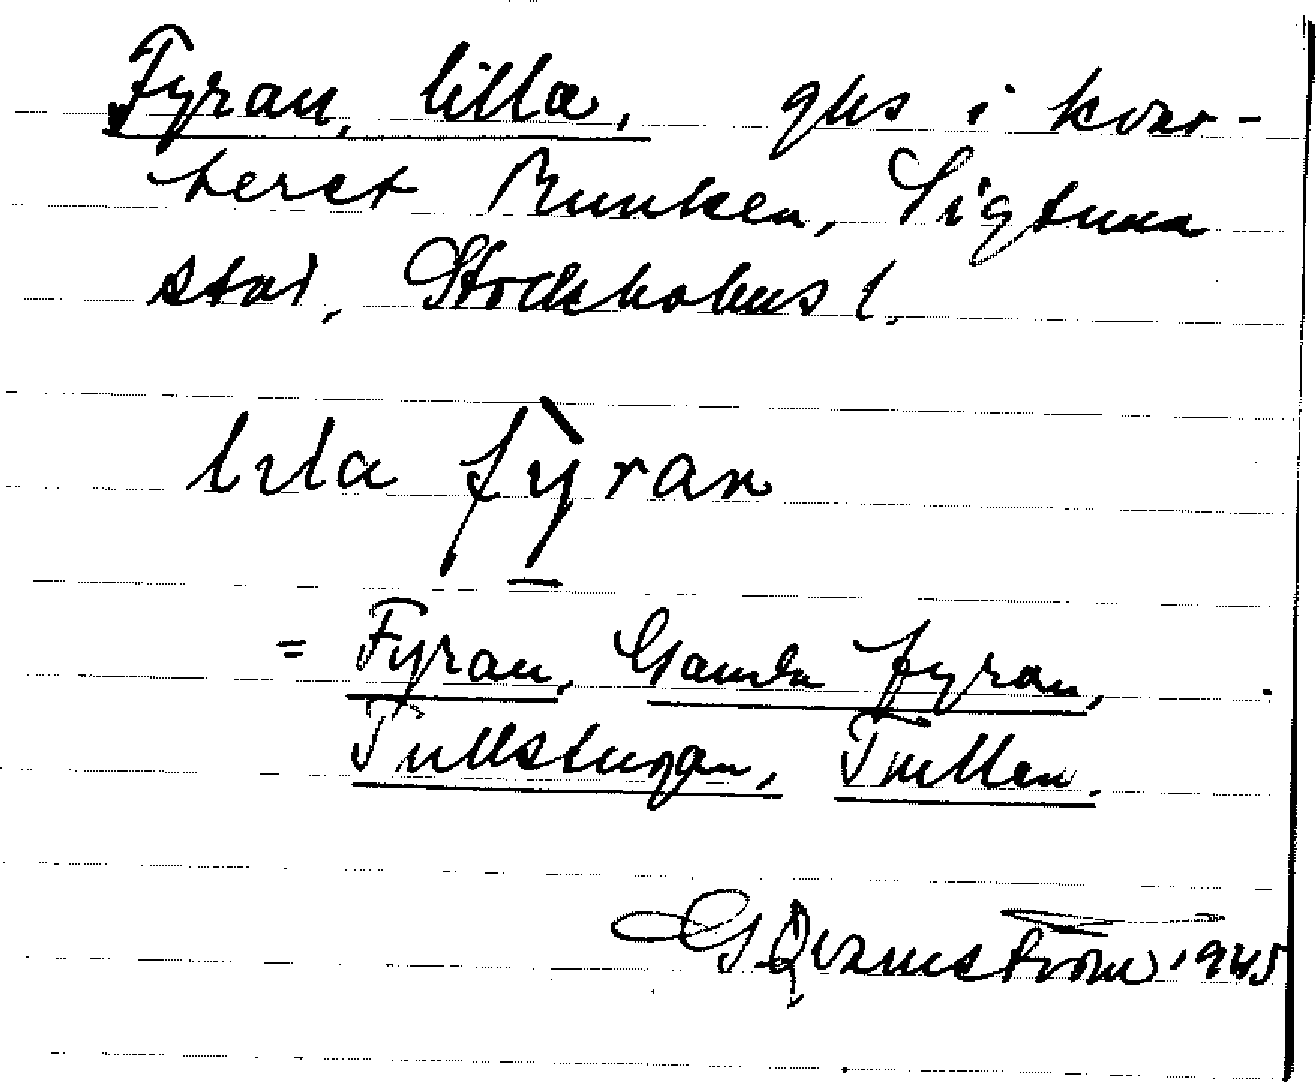 Fyran, lilla, gås i kvar-
teret Munken, Sigtuna
stad, Stockholms l.
lila fỳran
= Fyran, Gamla fyran,
Tullstugan, Tullen.
G Qvarnström 1945